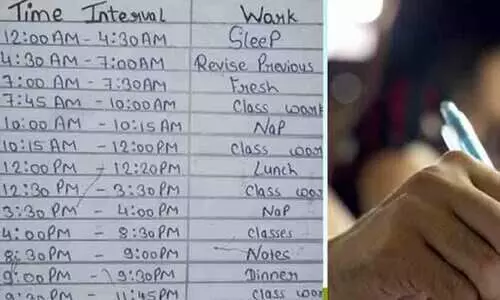 Time Interval Wark
12:00 AM - 4:30 AM SleeP
4:30 AM - 7:00 AM Revise Previous
7:00 AM - 7:30 AM Fresh
7:45 AM - 10:00 AM class wark
10:00 AM - 10:15 AM Nap
10:15 AM - 12:00 PM class wor
12:00 PM - 12:20 PM Lunch
12:30 PM - 3:30 PM class wor
3:30 PM - 4:00 PM Nap
4:00 PM - 8:30 PM classes
8:30 PM - 9:00 PM Notes
9:00 PM - 9:30 PM Dinner
9:30 PM - 11:45 PM class wor